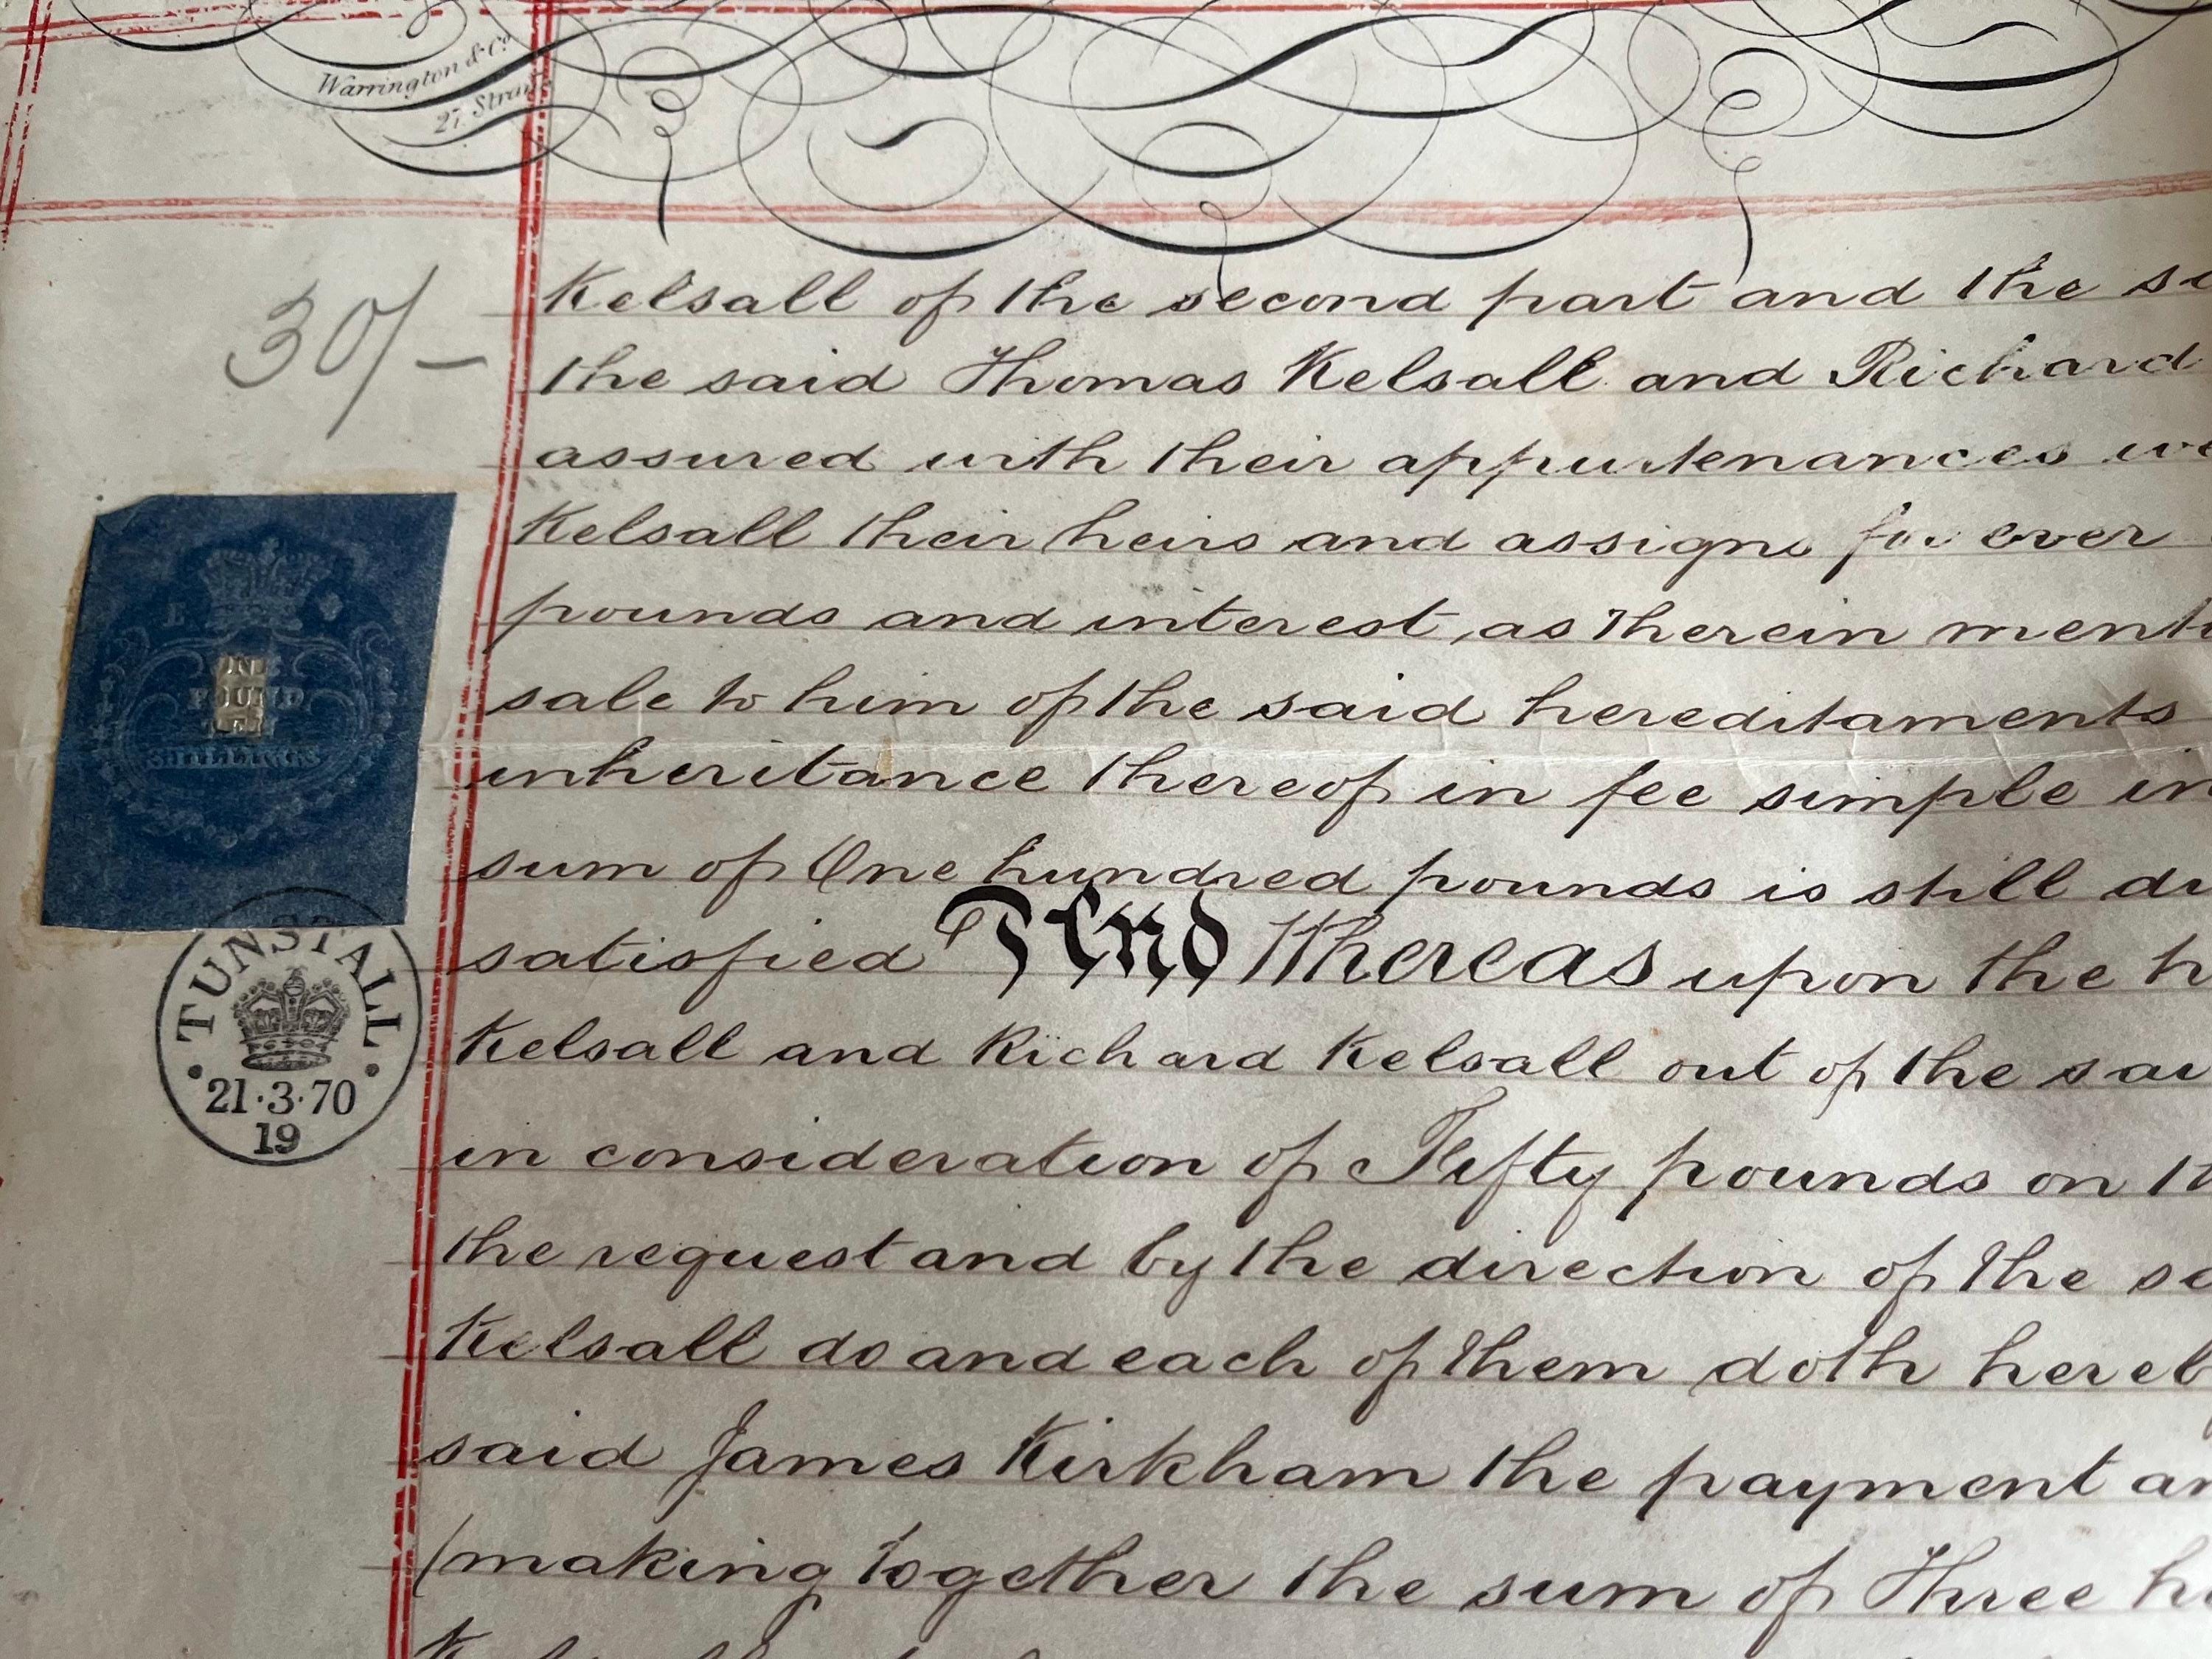 Warrington & Co.
27, Strand
30/-
Kelsall of the second part and the
the said Thomas Kelsall and Richard
assured with their appurtenances
Kelsall their heirs and assigns for ever
pounds and interest as therein
sale to him of the said hereditaments
inheritance thereof in fee simple in
sum of One hundred pounds is still
satisfied And Whereas upon the
Kelsall and Richard Kelsall out of the
in consideration of Fifty pounds on
the request and by the direction of the
Kelsall do and each of them doth
said James Kirkham the payment
(making together the sum of Three
ONE
POUND
TEN
SHILLINGS
TUNSTALL
21·3·70
19